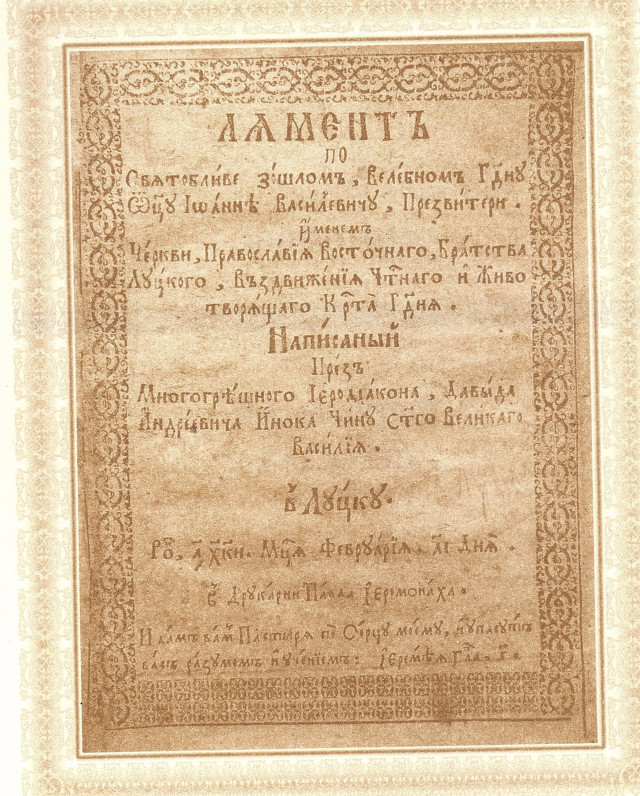 ЛѦМЕНТЪ
ПО
Свѧтобли́ве зо́шломъ, Велебномъ Гдⷭ҇ну
Ѿцу Іѡа́ннѣ Васи́лїевичу, Презви́тери.
И́менемъ
Че́ркви, Правосла́вїѧ Восто́чнаго, Бра́тства
Лу́цкого, Въздвиже́нїѧ Чтⷭ҇наго и҆ Живо
творѧ́щаго Крⷭ҇та̀ Гдⷭ҇нѧ.
Напи́саный
Презъ
Многогрѣ́шного Іеродїакона, Давыда
А҆ндре́евича И҆нока Чи́ну Ст҃го Великаго
Васи́лїѧ.
в Лу́цку.
Роⷦ҇, ҂а҃хки. Мцⷭ҇а Февруа́рїѧ, Днѧ̀.
З Друкарни Павла Іеромонаха.
И дамъ вамъ Пастырѧ по Се́рцу моему́, и҆ упасутъ
васъ разумомъ и҆ уче́нїемъ: Іеремѣѧ Гла. г҃.